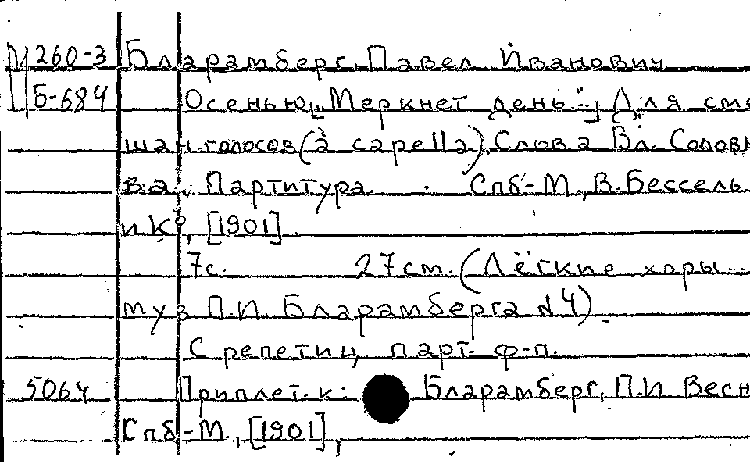 М 260-3 Бларамберг, Павел Иванович
Б-684 Осенью["Меркнет день"] Для сме
шан. голосов (à capella). Слова Вл. Соловь
ва. Партитура. Спб-М, В. Бессель
и К°, [1901].
7с. 27см. (Лёгкие хоры
муз П.И. Бларамберга №4).
С репетиц. парт. ф-п.
5064 Приплет. к: Бларамберг, П.И Весн
Спб-М, [1901],